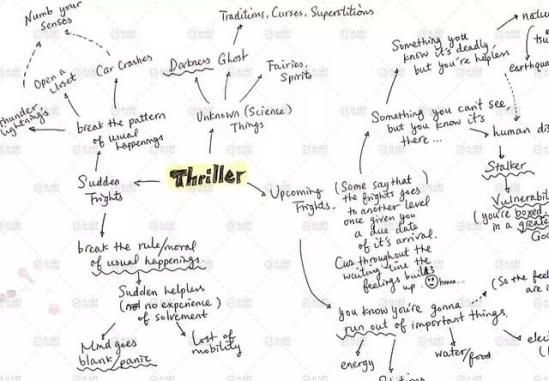 Numb your
senses
Open a
closet
Car Crashes
thunder
lightnings
break the pattern
of usual
happenings
Traditions, Curses, Superstitions
Darkness
Ghost
Fairies,
Spirits
Unknown (Science)
Things
Thriller
Sudden
Frights
Upcoming
Frights.
break the rule/moral
of usual happenings
Sudden helpless
(not no experience)
of solvrement
Mind goes
blank/panic
Lost of
mobility
Something you
know it's deadly,
but you're helpless
natur
tsu
earthqua
Something you can't see,
but you know it's
there...
human di
Stalker
Vulnerabili
(you're boxed
in a greate
(Some say that
the frights goes
to another level
once given you
a due date
of it's arrival.
Cus throughout the
waiting time the
feelings builds
up. hmm...
(So the fee
are i
you know you're gonna
run out of important things.
energy
water/food
elec